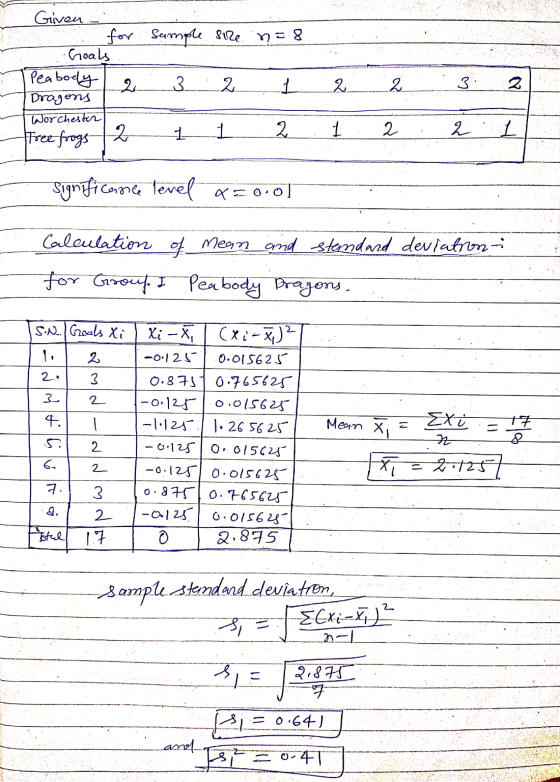 Given –
for sample size n = 8
Goals
Peabody Dragons 2 3 2 1 2 2 3 2
Worchester Tree frogs 2 1 1 2 1 2 2 1
Significance level α = 0.01
Calculation of Mean and standard deviation :-
for Group I Peabody Dragons.
S.N. Goals Xi Xi – X̄₁ (Xi – X̄₁)²
1. 2 -0.125 0.015625
2. 3 0.875 0.765625
3. 2 -0.125 0.015625
4. 1 -1.125 1.265625
5. 2 -0.125 0.015625
6. 2 -0.125 0.015625
7. 3 0.875 0.765625
8. 2 -0.125 0.015625
Total 17 0 2.875
Mean X̄₁ = ΣXi / n = 17 / 8
X̄₁ = 2.125
sample standard deviation,
s₁ = √(Σ(Xi – X̄₁)² / n-1)
s₁ = √(2.875 / 7)
s₁ = 0.641
and s₁² = 0.41